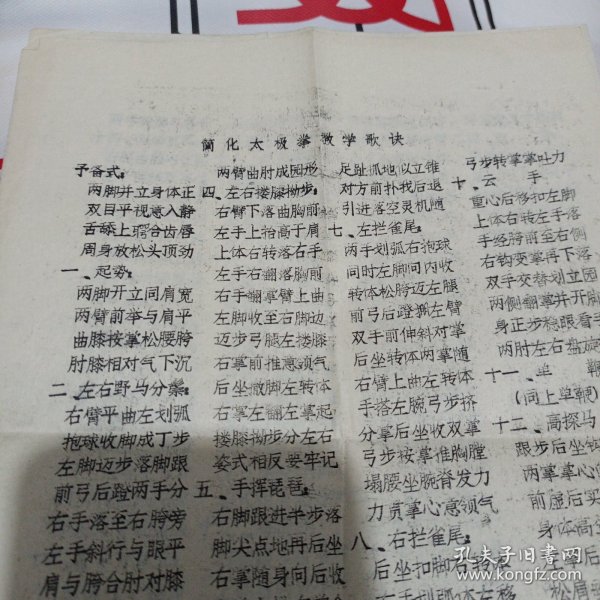 简化太极拳教学歌诀
予备式:
两脚并立身体正
双目平视意入静
舌舔上腭合齿唇
周身放松头顶劲
一、起势:
两脚开立同肩宽
两臂前举与肩平
曲膝按掌松腰胯
肘膝相对气下沉
二、左右野马分鬃:
右臂平曲左划弧
抱球收脚成丁步
左脚迈步落脚跟
前弓后蹬两手分
右手落至右胯旁
左手斜行与眼平
肩与胯合肘对膝
两臂曲肘成园形
四、左右搂膝拗步:
右臂下落曲胸前
左手上抬高于肩
上体右转落右手
左手右翻落胸前
右手翻掌臂上曲
左脚收至右脚边
迈步弓腿左搂膝
右掌前推意领气
后坐微脚左转体
右掌左翻左掌起
搂膝拗步分左右
姿式相反要牢记
五、手挥琵琶:
右脚跟进半步落
脚尖点地再后坐
右掌随身向后收
足趾抓地似立锥
对方前扑我后退
引进落空灵机随
七、左拦雀尾:
两手划弧右抱球
同时左脚向内收
转体松胯迈左腿
前弓后蹬掤左臂
双手前伸斜对掌
后坐转体两掌随
右臂上曲左转体
手搭左腕弓步挤
分掌后坐收双掌
弓步按掌推胸膛
塌腰坐腕脊发力
力贯掌心意领气
八、右拦雀尾:
后坐扣脚右转
右手划弧体左移
弓步转掌掌吐力
十、云手
重心后移扣左脚
上体右转左手落
手经胯前至右侧
右钩变掌再下落
双手交替划立园
两侧翻掌并开脚
身正步稳眼看手
两肘左右盘旋
十一、单鞭
(同上单鞭)
十二、高探马
跟步后坐
两掌掌心
前虚后实
身体高
松肩
孔夫子旧书网
www.kongfz.com